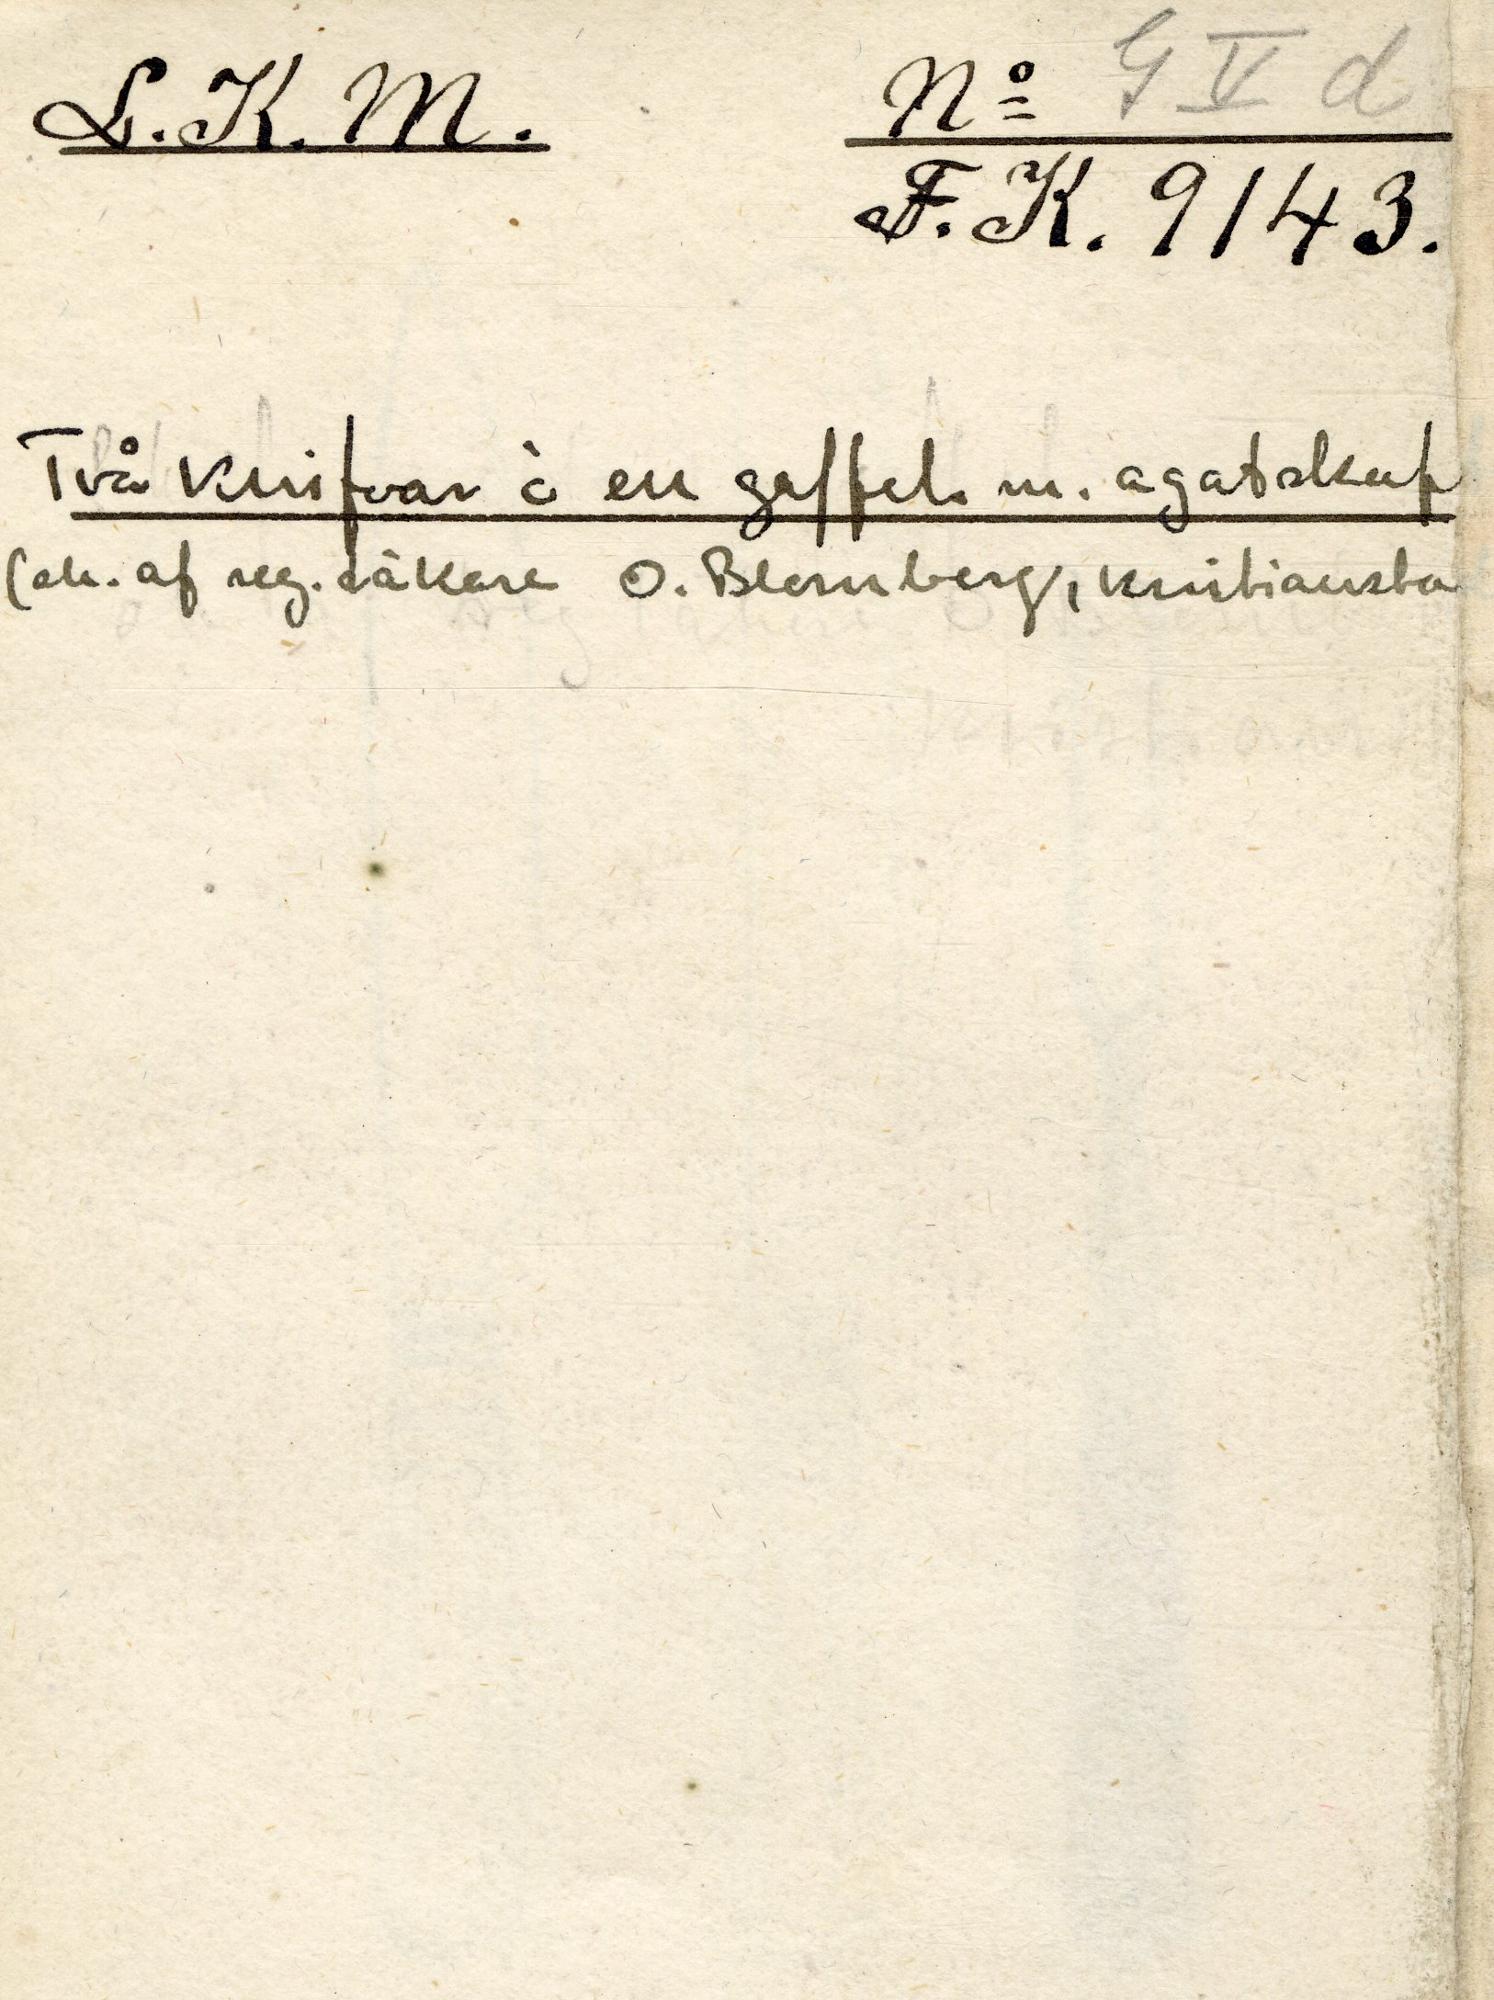 L.K.M.
Nº G V d
F.K. 9143.
Två knifvar o en gaffel m. agatskaf
(sk. af reg. läkare O. Blomberg, Kristiansta